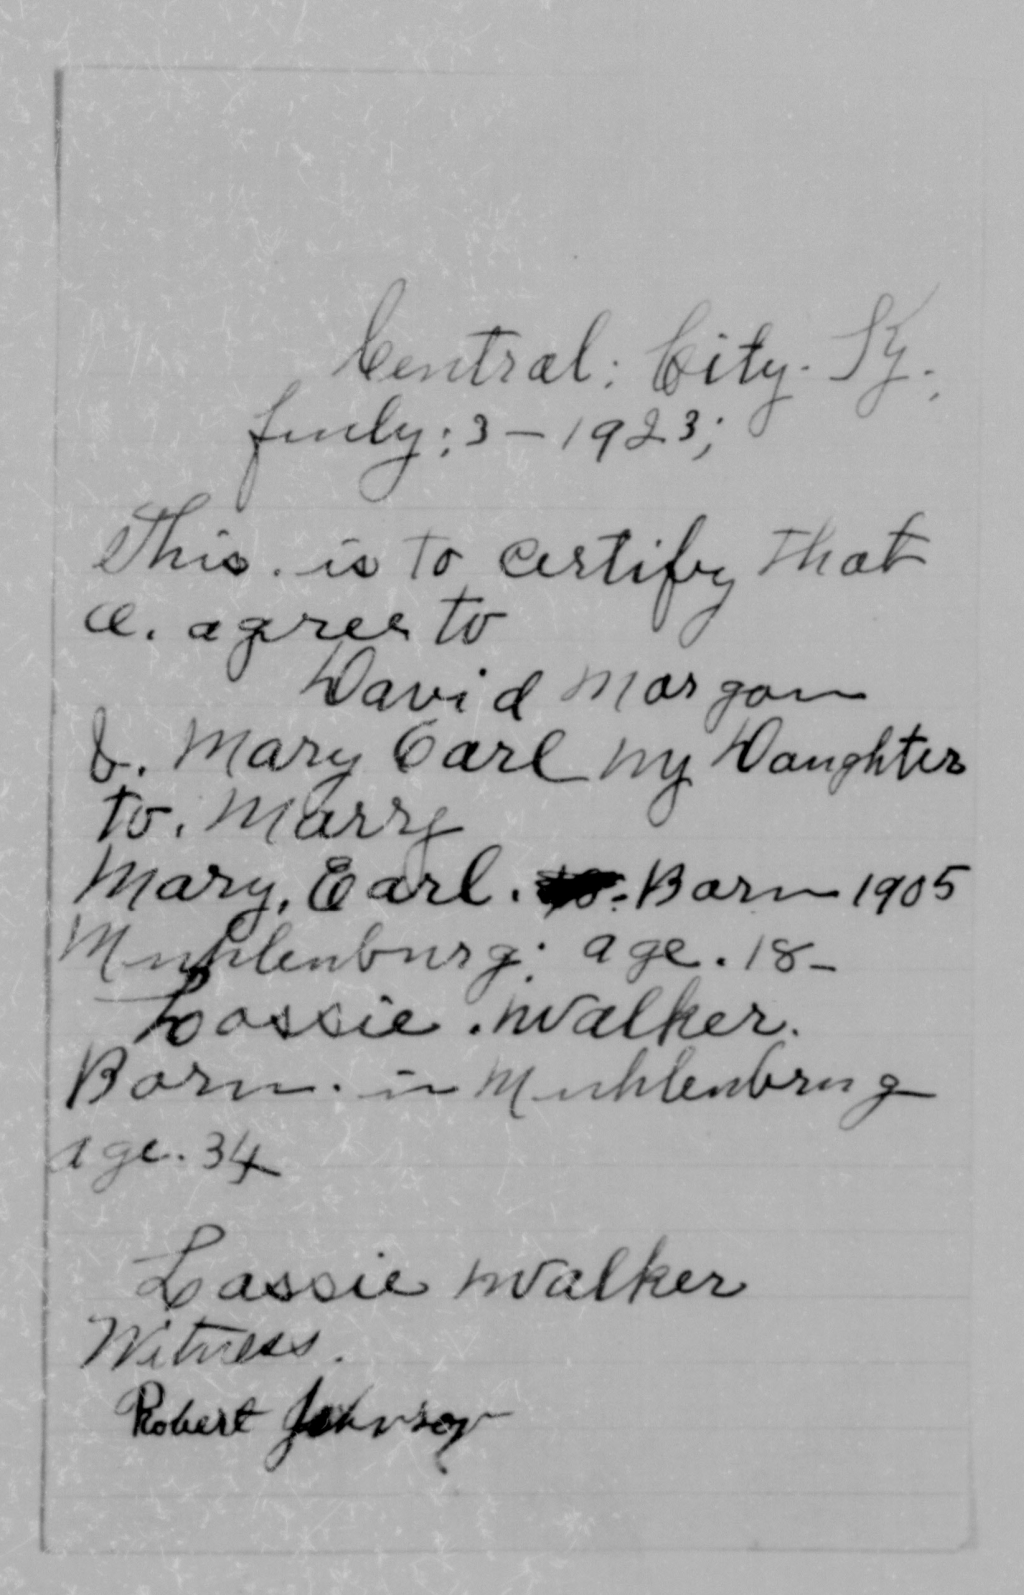 Central: City. Ky.
July: 3 - 1923;
This. is to certify that
a. agree to
David Morgan
&. Mary Earl my Daughter
to. Marry
Mary, Earl. Born 1905
Muhlenburg: age. 18-
Lossie. Walker.
Born. in Muhlenbrug
age. 34
Lassie Walker
Witness.
Robert Johnson